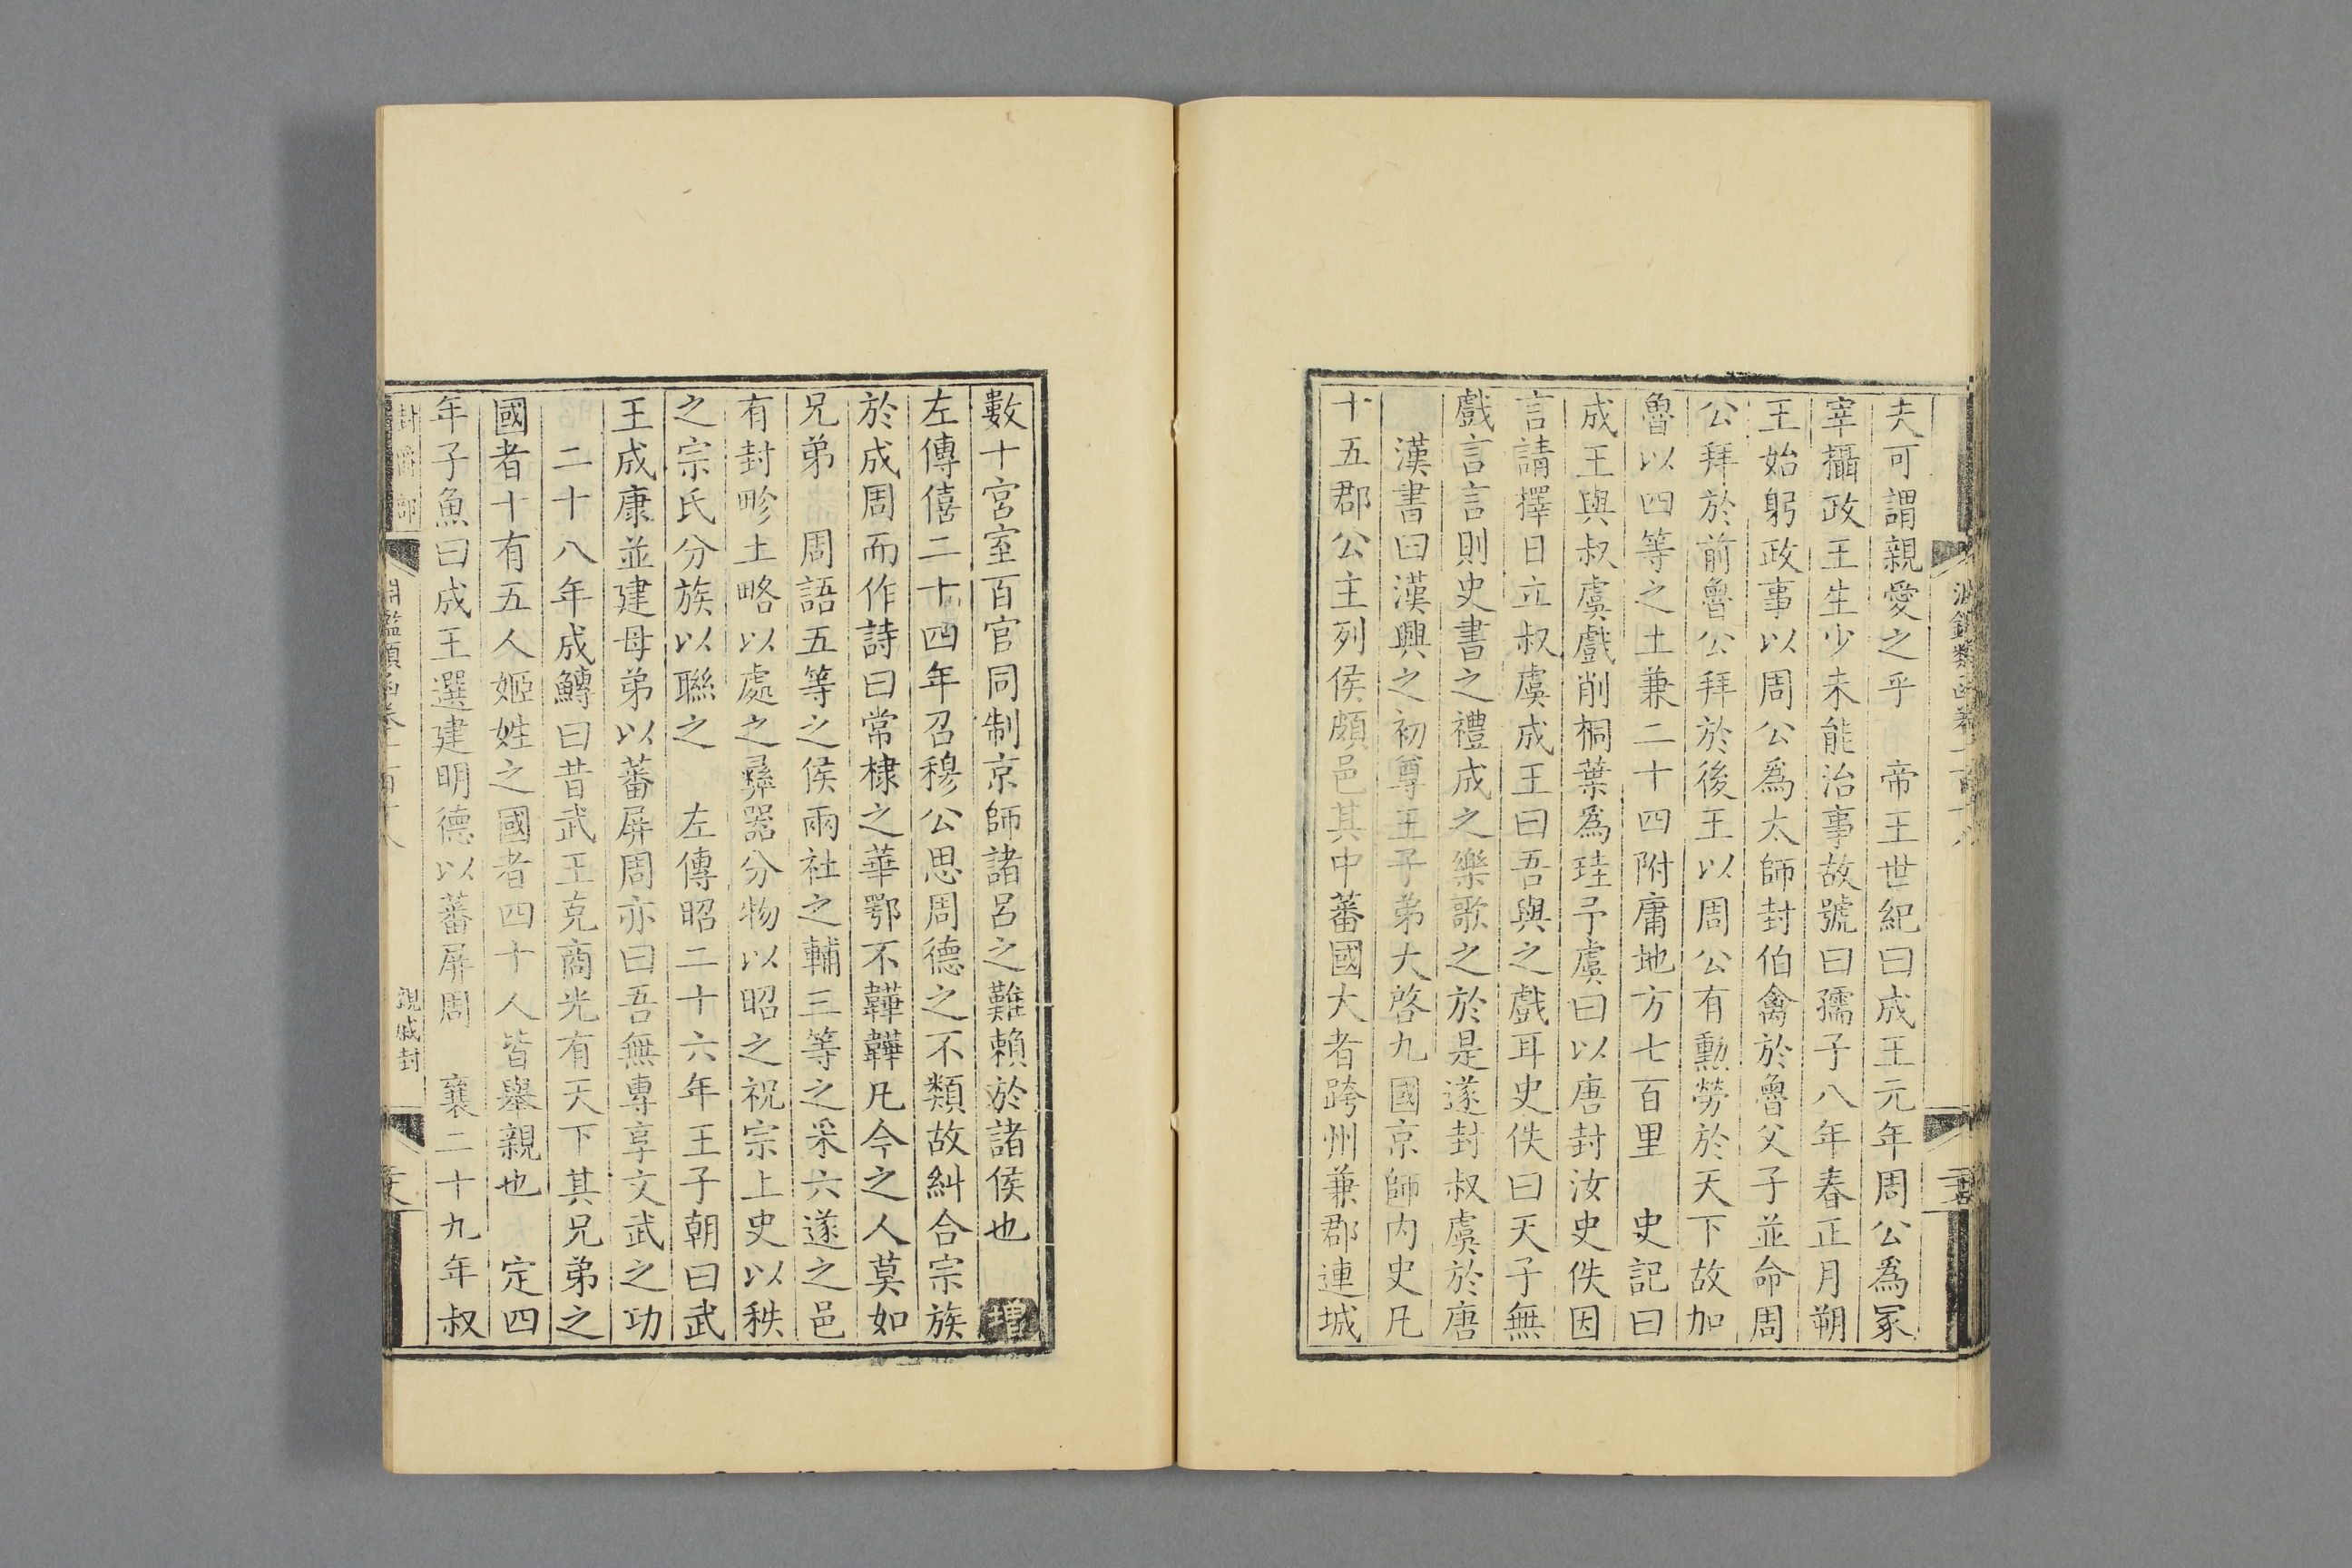 夫可謂親愛之乎　帝王世紀曰成王元年周公爲冢
宰攝政王生少未能治事故號曰孺子八年春正月朔
王始躬政事以周公爲太師封伯禽於魯父子並命周
公拜於前魯公拜於後王以周公有勳勞於天下故加
魯以四等之土兼二十四附庸地方七百里　史記曰
成王與叔虞戲削桐葉爲珪予虞曰以唐封汝史佚因
言請擇日立叔虞成王曰吾與之戲耳史佚曰天子無
戲言言則史書之禮成之樂歌之於是遂封叔虞於唐
漢書曰漢興之初尊王子弟大啓九國京師内史凡
十五郡公主列侯頗邑其中蕃國大者跨州兼郡連城
數十宮室百官同制京師諸呂之難賴於諸侯也　增
左傳僖二十四年召穆公思周德之不類故糾合宗族
於成周而作詩曰常棣之華鄂不韡韡凡今之人莫如
兄弟　周語五等之侯兩社之輔三等之采六遂之邑
有封畛土略以處之彝器分物以昭之祝宗上史以秩
之宗氏分族以聯之　左傳昭二十六年王子朝曰武
王成康並建母弟以蕃屏周亦曰吾無專享文武之功
二十八年成鱄曰昔武王克商光有天下其兄弟之
國者十有五人姬姓之國者四十人皆舉親也　定四
年子魚曰成王選建明德以蕃屏周　襄二十九年叔
封爵部
親戚封